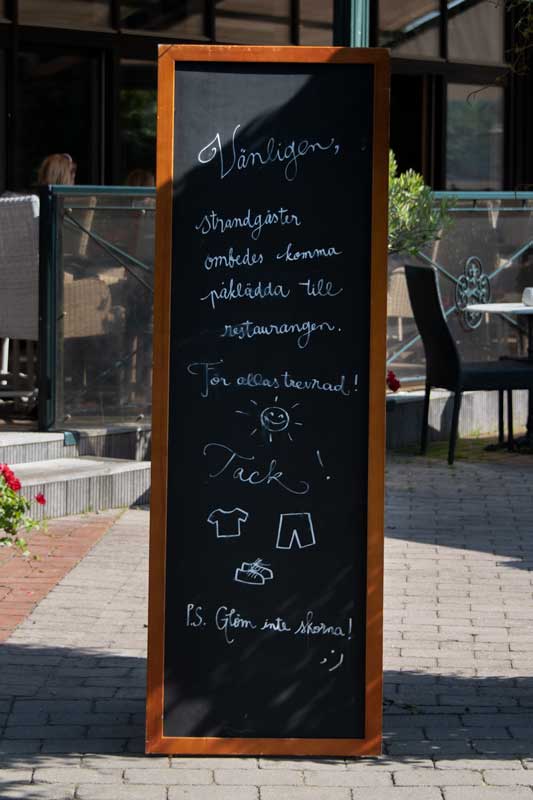 Vänligen,
strandgäster
ombedes komma
påklädda till
restaurangen.
För allas trevnad!
Tack!
P.S. Glöm inte skorna!
;)